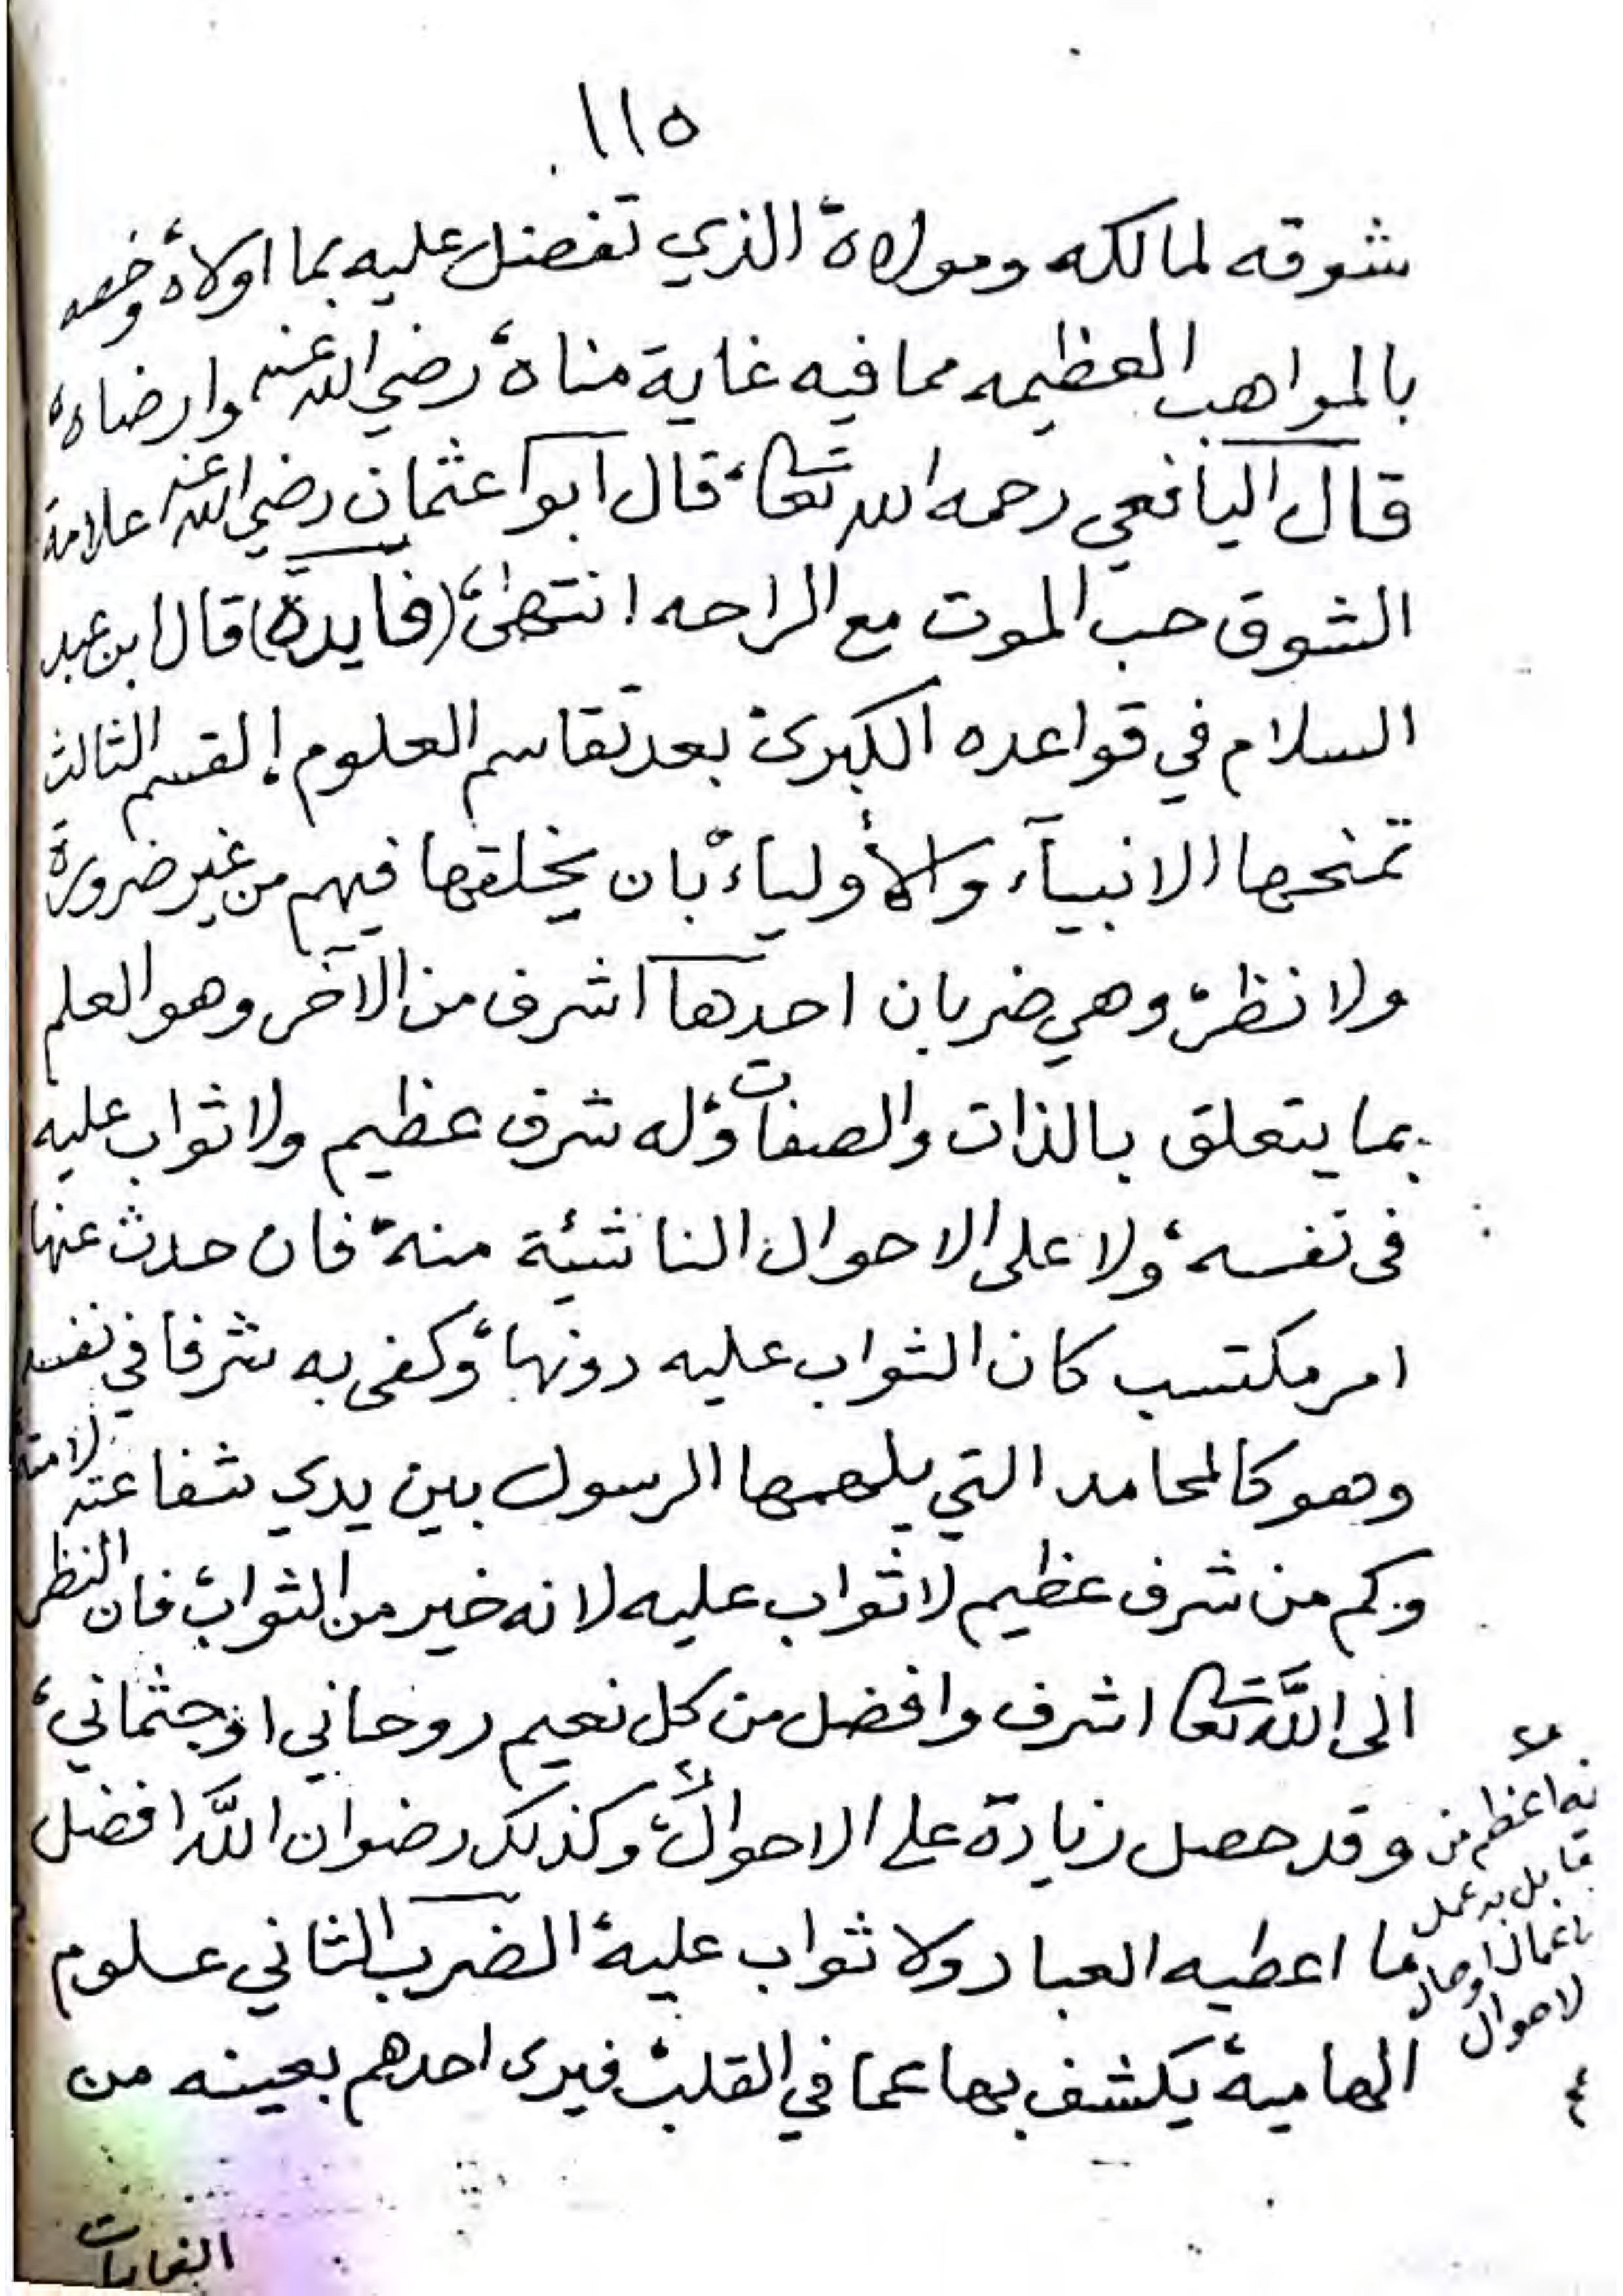 ١١٥
شوقه لمالكه ومولاه الذي تفضل عليه بما اولاه وخصه
بالمواهب العظيمه مما فيه غاية مناه رضي الله عنه وارضاه
قال اليافعي رحمه الله تعا قال ابوا عثمان رضي الله عنه علامة
الشوق حب الموت مع الراحه انتهى (فايدة) قال ابن عبد
السلام في قواعده الكبرى بعد تقاسم العلوم القسم الثالث
تمنحها الانبيآء والأولياء بان يخلقها فيهم من غير ضرورة
ولا نظر وهي ضربان احدها اشرف من الآخر وهو العلم
بما يتعلق بالذات والصفات وله شرف عظيم ولا ثواب عليه
فى نفسه ولا على الاحوال الناشئة منه فان حدث عنها
امر مكتسب كان الثواب عليه دونها وكفى به شرفا في نفسه
وهو كالمحامد التي يلهمها الرسول بين يدي شفاعته لامته
وكم من شرف عظيم لا ثواب عليه لانه خير من الثواب فان النظر
الى اللَّه تعا اشرف وافضل من كل نعيم روحاني او جثماني
وقد حصل زيادة على الاحوال وكذلك رضوان اللَّه افضل
ما اعطيه العباد ولا ثواب عليه الضرب الثاني علوم
الهامية يكشف بها عما في القلب فيرى احدهم بعينه من
اعظم من
قابل به عمل
لاحوال